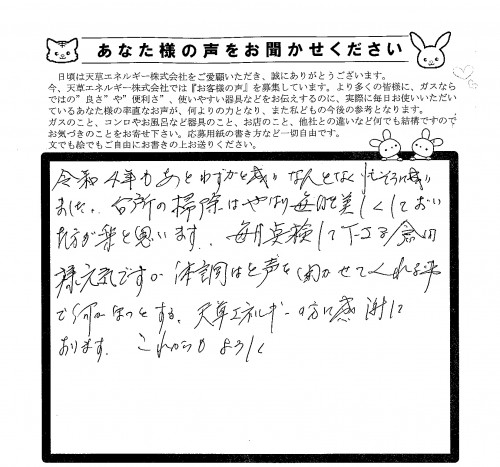 あなた様の声をお聞かせください
日頃は天草エネルギー株式会社をご愛顧いただき、誠にありがとうございます。
今、天草エネルギー株式会社では『お客様の声』を募集しています。より多くの皆様に、ガスなら
ではの"良さ"や"便利さ"、使いやすい器具などをお伝えするのに、実際に毎日お使いいただい
ているあなた様の率直なお声が、何よりの力となり、また私どもの今後の参考となります。
ガスのこと、コンロやお風呂など器具のこと、お店のこと、他社との違いなど何でも結構ですので
お気づきのことをお寄せ下さい。応募用紙の書き方など一切自由です。
文でも絵でもご自由にお書きの上お送りください。
令和4年もあとわずかと成り なんとなく
ました。台所の掃除はやはり毎日を美しくしておい
た方が楽と思います。毎月点検して下さる倉田
様元気ですか 体調はと声を聞かせてくれる
で何かほっとする。天草エネルギーの方に感謝して
おります。これからもよろしく